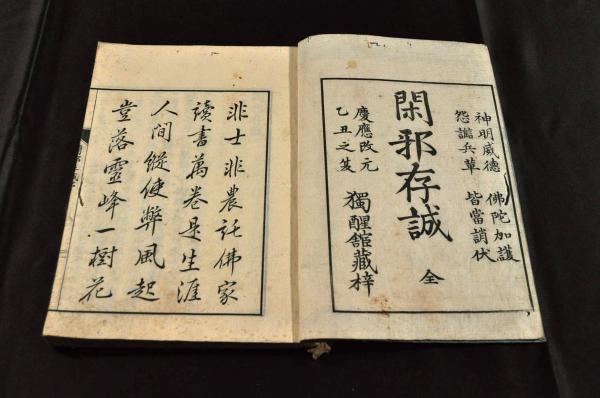 神明威德 佛陀加護
怨 兵革 皆當誚伏
閑邪存誠 全
慶應改元
乙丑之 獨醒舘藏梓
非士非農託佛家
讀書萬卷是生涯
人間縱使弊風起
豈落靈峰一樹花